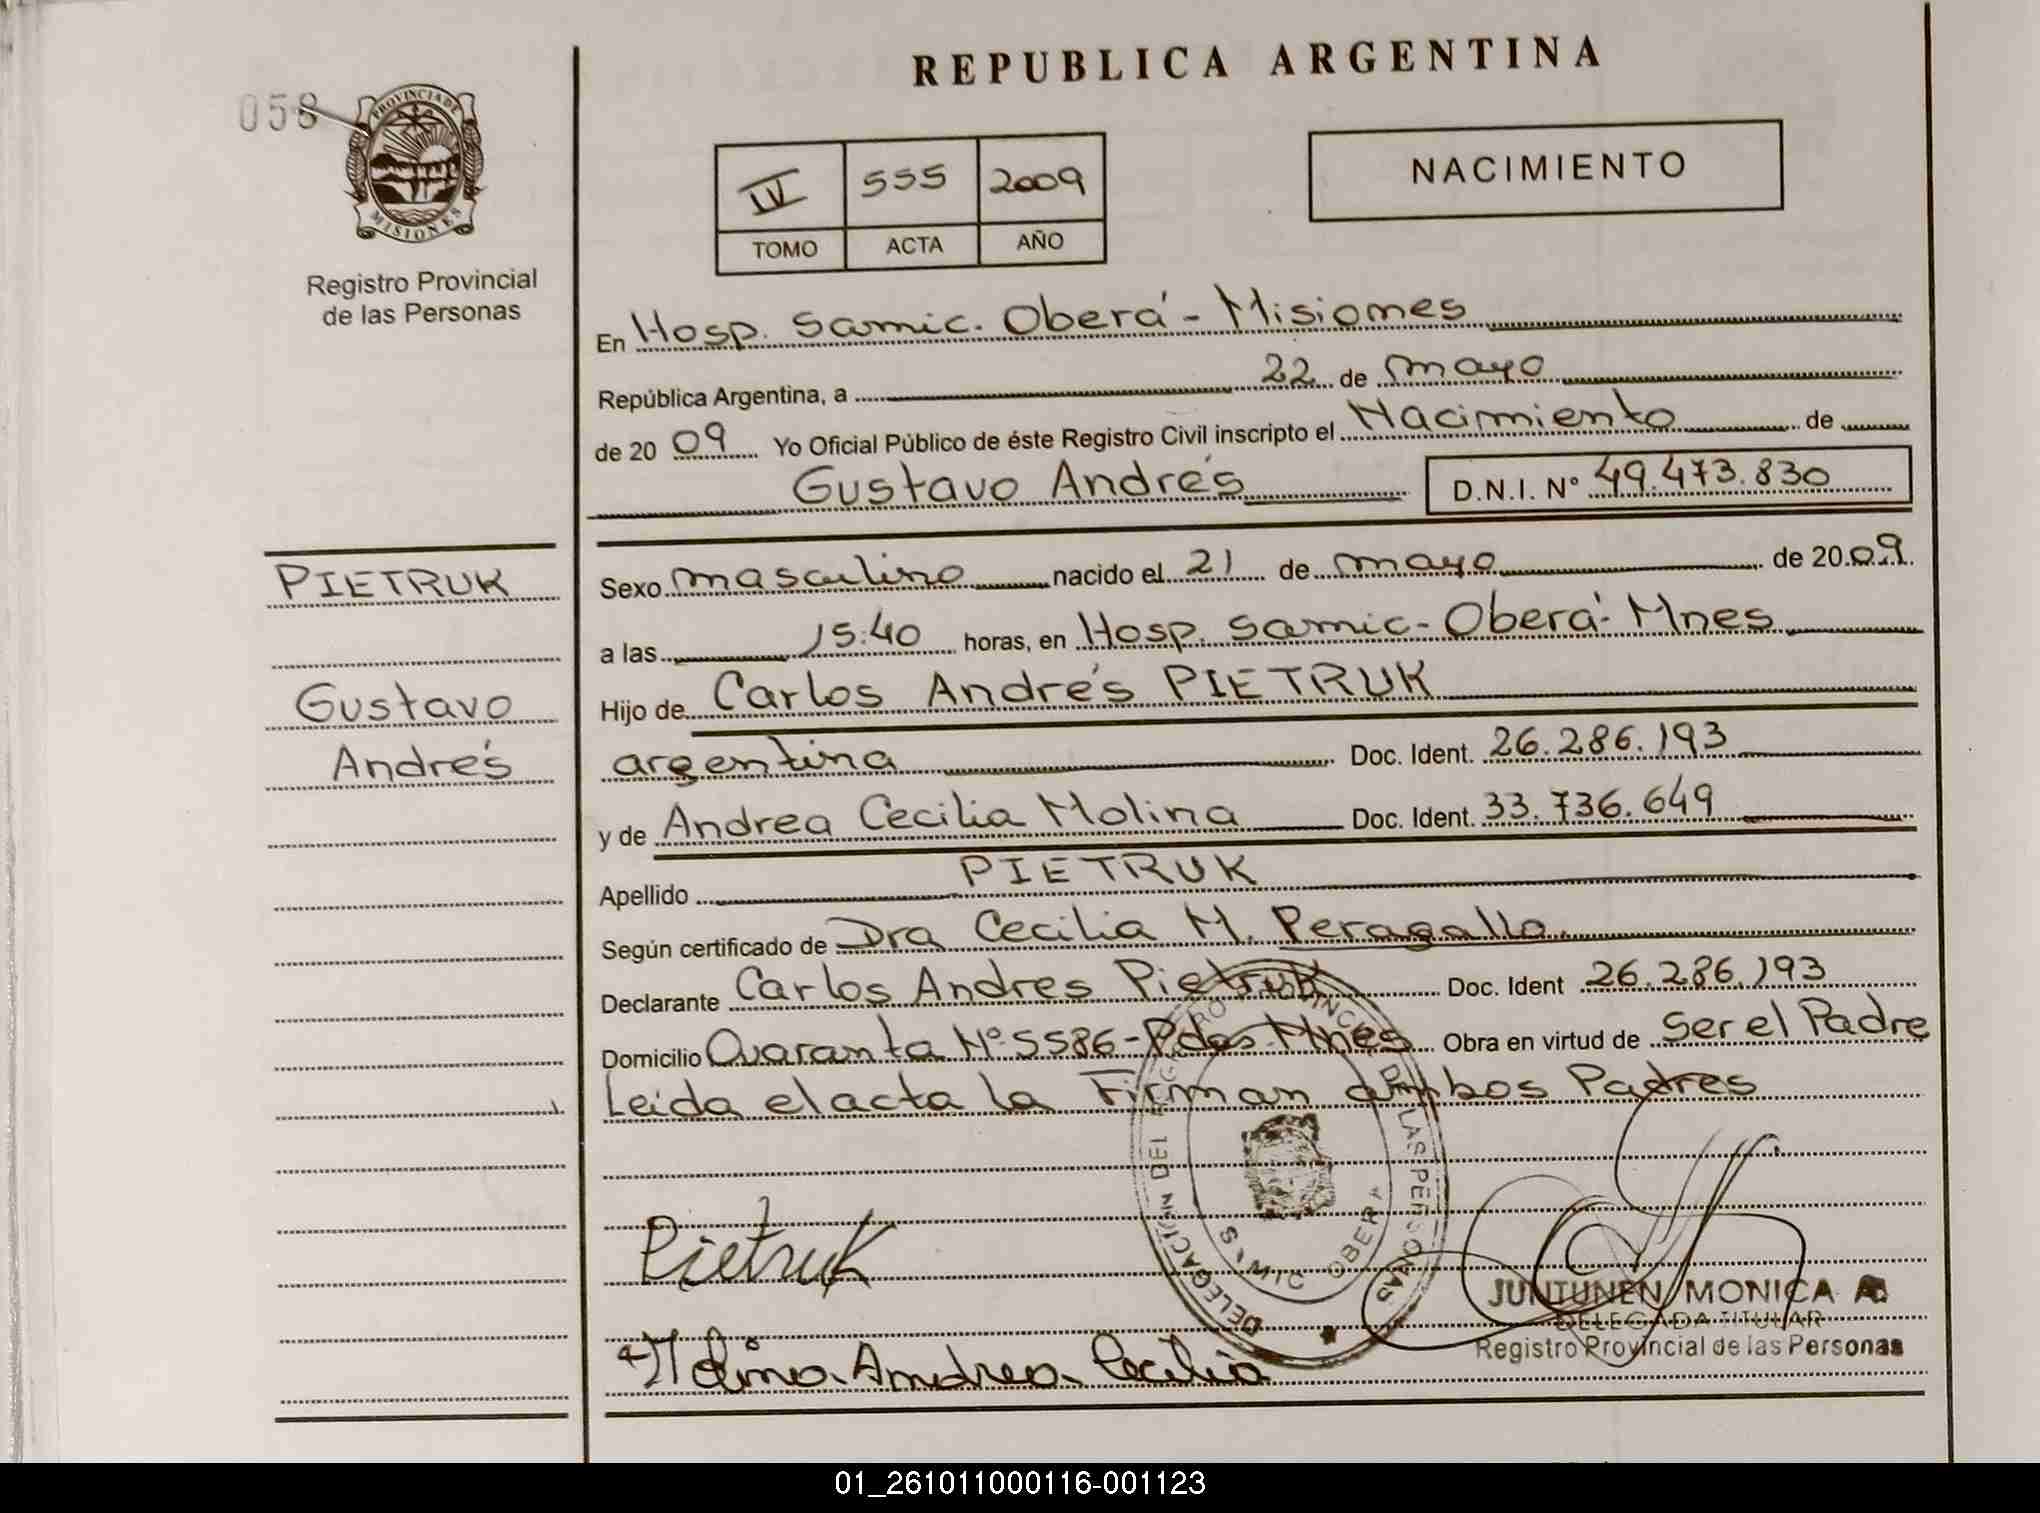 REPUBLICA ARGENTINA
058
PROVINCIA DE
MISIONES
Registro Provincial
de las Personas
IV 555 2009
TOMO ACTA AÑO
NACIMIENTO
En Hosp. Samic. Oberá - Misiones
República Argentina, a 22 de mayo
de 2009 Yo Oficial Público de éste Registro Civil inscripto el Nacimiento de
Gustavo Andrés D.N.I. N° 49.473.830
PIETRUK
Gustavo
Andrés
Sexo masculino nacido el 21 de mayo de 2009.
a las 15:40 horas, en Hosp. Samic - Oberá - Mnes
Hijo de Carlos Andrés PIETRUK
argentina Doc. Ident. 26.286.193
y de Andrea Cecilia Molina Doc. Ident. 33.736.649
Apellido PIETRUK
Según certificado de Dra Cecilia M. Peragallo.
Declarante Carlos Andres Pietruk Doc. Ident 26.286.193
Domicilio Quaranta N° 5586 - Pdas - Mnes Obra en virtud de Ser el Padre
Leida el acta la Firman ambos Padres
DELEGACION DEL REGISTRO PROVINCIAL DE LAS PERSONAS
SAMIC OBERA
Pietruk
Molina Andrea Cecilia
JUNTUNEN MONICA A.
DELEGADA TITULAR
Registro Provincial de las Personas
01_261011000116-001123